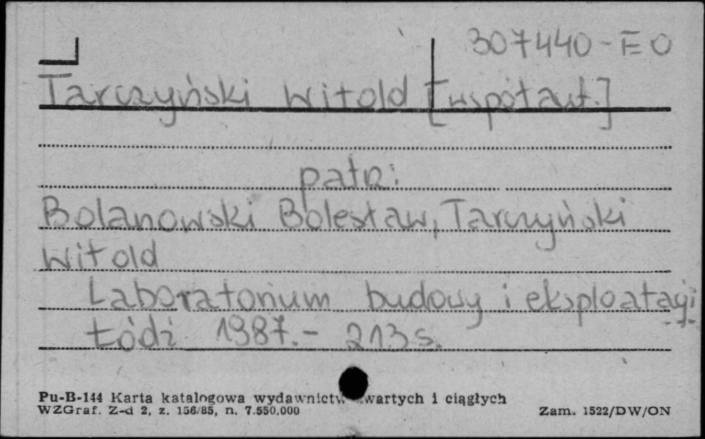 307440-EO
Tarczyński Witold [współaut.]
patrz:
Bolanowski Bolesław, Tarczyński
Witold
Laboratorium budowy i eksploatacji
Łódź 1987.- 213 s.
Pu-B-144 Karta katalogowa wydawnictw zwartych i ciągłych
WZGraf. Z-d 2, z. 156/85, n. 7.550.000
Zam. 1522/DW/ON